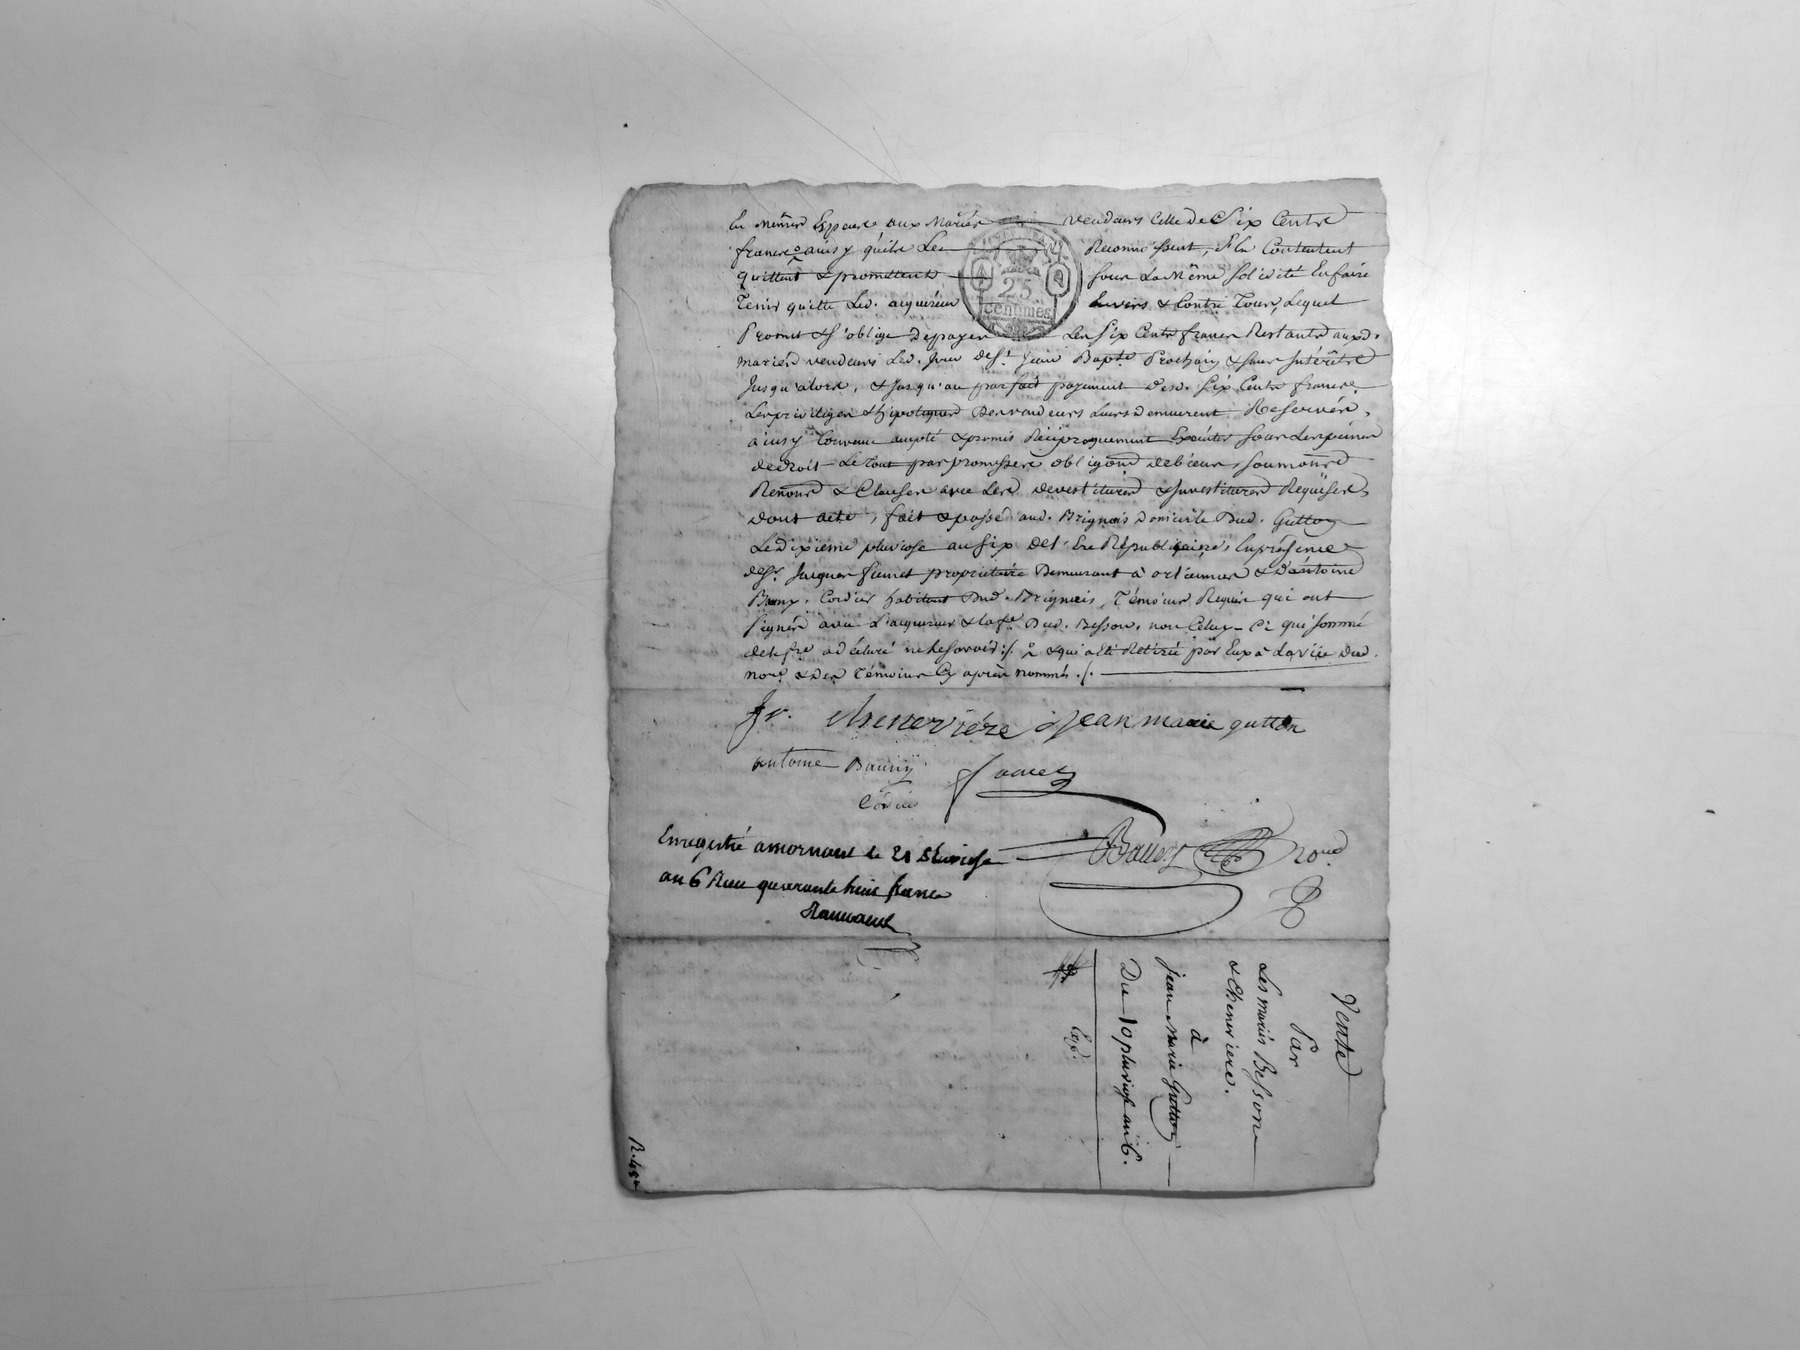 En mêmes Especes aux Mariés vendeurs Celle de Six Centz
francs ainsy qu'ils Le Reconnoissent, S'En Contentent
quittent & promettent sous La Même solidité En faire
Tenir quitte Led. acquereur Envers & Contre Tous, Lequel
Promet & S'oblige de payer Les Six Centz francs Restants auxd.
mariés vendeurs Led. Jour de St Jean Bapte Prochain & sans Intérêts
Jusqu'alors, & Jusqu'au parfait payement desd. Six Centz francs
Les privileges & hipoteques des vendeurs Leurs demeurent Reservés,
ainsy Convenu accepté & promis Réciproquement Exécuter sous Les peines
de droit Le Tout par promesses obligons de biens, soumons
Renons & Clauses avec Les devestitures & Investitures Requises,
dont acte, fait & passé aud. Brignais Domicile Dud. Gutton
Le dixieme pluviose an six de l'Ere Républicaine, En présence
de Sr. Jacques fument propriétaire Demeurant à orliennas & d'antoine
Bouny, Cordier habitant Dud. Brignais, Témoins Requis qui ont
signés avec L'acquereur & La fe. Dud. Besson, non Celuy-Ci qui sommé
de le fre a déclaré ne Le savoir ./. & qui a été Retiré par Eux à La vüe Dud.
nore & Des Témoins Cy après nommés ./.
fr. chenerviére Jean marie gutton
antoine Bauny
Cordier
Enregistré a mornant le 21 Pluviose
an 6 Reçu quarante huit francs
Vente
Par
Les mariés Besson
& Chenerviere.
à
jean Marie Gutton
Du 10 pluviose an 6.
Exp.